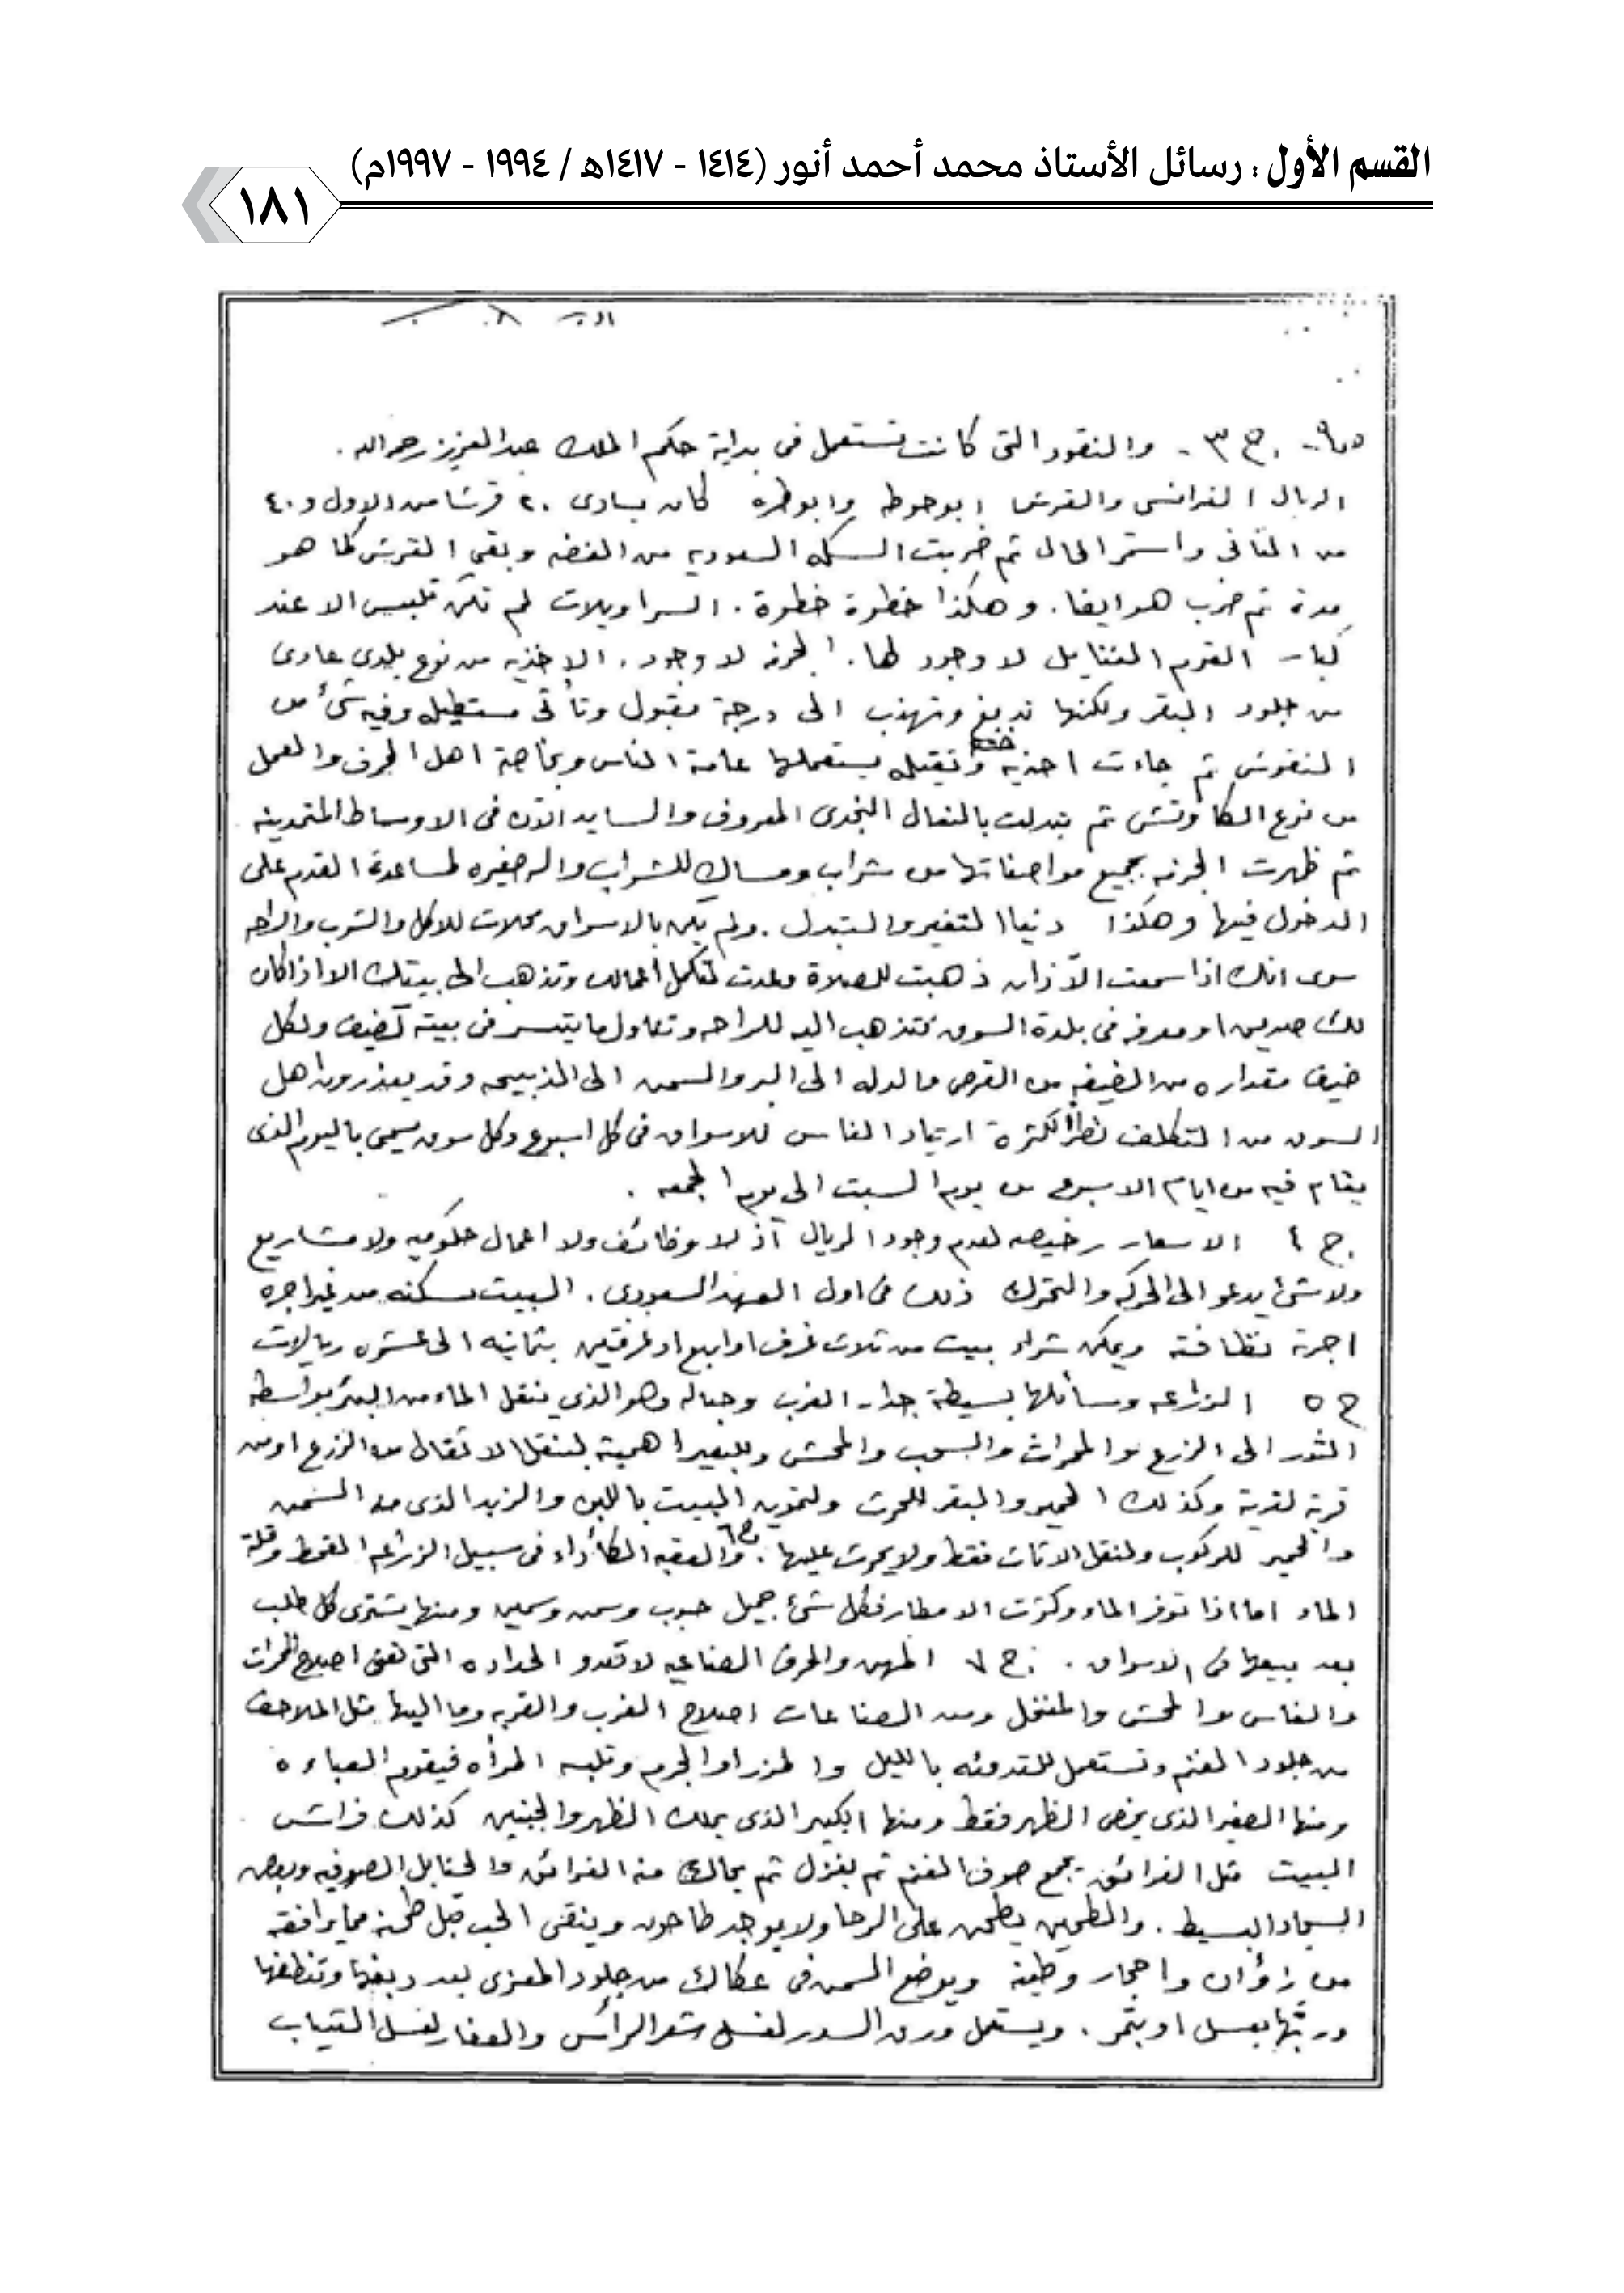 القسم الأول : رسائل الأستاذ محمد أحمد أنور (١٤١٤ - ١٤١٧هـ / ١٩٩٤ - ١٩٩٧م)
١٨١
ج ٣ - والنقود التى كانت تستعمل فى بداية حكم الملك عبدالعزيز رحمه الله .
الريال الفرانسى والقرش ابوحوطه وابوطره كان يساوى ٢٠ قرشا من الاول و ٤٠
من الثانى واستمر الحال ثم ضربت السكه السعوديه من الفضه وبقى القرش كما هو
مدة ثم ضرب هو ايضا . وهكذا خطوة خطوة . السراويلات لم تكن تلبس الا عند
كبار القوم الفنايل لا وجود لها . الجزمه لا وجود . الاحذيه من نوع بلدى عادى
من جلود البقر ولكنها تدبغ وتهذب الى درجة مقبول وتأتى مستطيله وفيه شئ من
النقوش ثم جاءت احذيه وثقيله يستعملها عامة الناس وبخاصة اهل الحرف والعمل
من نوع الكاوتش ثم تبدلت بالنعال النجدى المعروف والسايد الآن فى الاوساط المتمدينه
ثم ظهرت الجزمه بجميع مواصفاتها من شراب ومساك للشراب واله صغيره لمساعدة القدم على
الدخول فيها وهكذا دنيا التغير والتبدل . ولم يكن بالاسواق محلات للاكل والشرب والراحه
سوى انك اذا سمعت الآذان ذهبت للصلاة وعدت لتكمل أعمالك وتذهب الى بيتك الا اذا كان
لك صديق او معرفه فى بلدة السوق فتذهب اليه للراحه وتناول ما يتيسر فى بيته كضيف ولكل
ضيف مقداره من الضيفه من القرص مالدله الى البر والسمن الى الذبيحه وقد يعذرون اهل
السوق من التكلف نظرا لكثرة ارتياد الناس للاسواق فى كل اسبوع وكل سوق يسمى باليوم الذى
يقام فيه من ايام الاسبوع من يوم السبت الى يوم الجمعه .
ج ٤ الاسعار رخيصه لعدم وجود الريال اذ لا وظائف ولا اعمال حكوميه ولا مشاريع
ولا شئ يدعو الى الحركه والتحرك ذلك فى اول العهد السعودى . البيت سكنه من غير اجره
اجرته نظافته ويمكن شراء بيت من ثلاث غرف او اربع او غرفتين بثمانيه الى عشره ريالات
ج ٥ الزراعه وسائلها بسيطة جدا - الغرب وحباله وهو الذى ينقل الماء من البئر بواسطه
الثور الى الزرع والمحراث والسحب والمحش وللبعير اهمية لنقل الاثقال من الزرع او من
قرية لقرية وكذلك الحمير والبقر للحرث ولتموين البيت باللبن والزبد الذى منه السمن
والحمير للركوب ولنقل الاثاث فقط ولا يحرث عليها . ج٦ والعقبه الكأداء فى سبيل الزراعه القحط وقلة
الماء اما اذا توفر الماء وكثرت الامطار فكل شئ جميل حبوب وسمن وسمين ومنها يشترى كل طلب
بعد بيعها فى الاسواق . ج ٧ المهن والحرف الصناعيه لا تعدو الحداده التى تعنى اصلاح المحراث
والفاس والمحش والمنخل ومن الصناعات اصلاح الغرب والقربه وما اليها مثل الملاحف
من جلود الغنم وتستعمل للتدفئه بالليل والمزر او الجرم وتلبسه المرأه فيقوم العباءه
ومنها الصغير الذى يخص الظهر فقط ومنها الكبير الذى يملك الظهر والجنبين كذلك فراش
البيت مثل الفرائق يجمع صوف الغنم ثم يغزل ثم يحاك منه الفرائق والحنابل الصوفيه وبعض
السجاد البسيط . والطحين يطحن على الرحا ولا يوجد طاحون وينقى الحب قبل طحنه مما يرافقه
من زؤان واحجار وطينة ويوضع السمن فى عكاك من جلود المعزى بعد دبغها وتنظفها
وربّها بعسل او بتمر . ويستعمل ورق السدر لغسل شعر الرأس والعفار لغسل الثياب